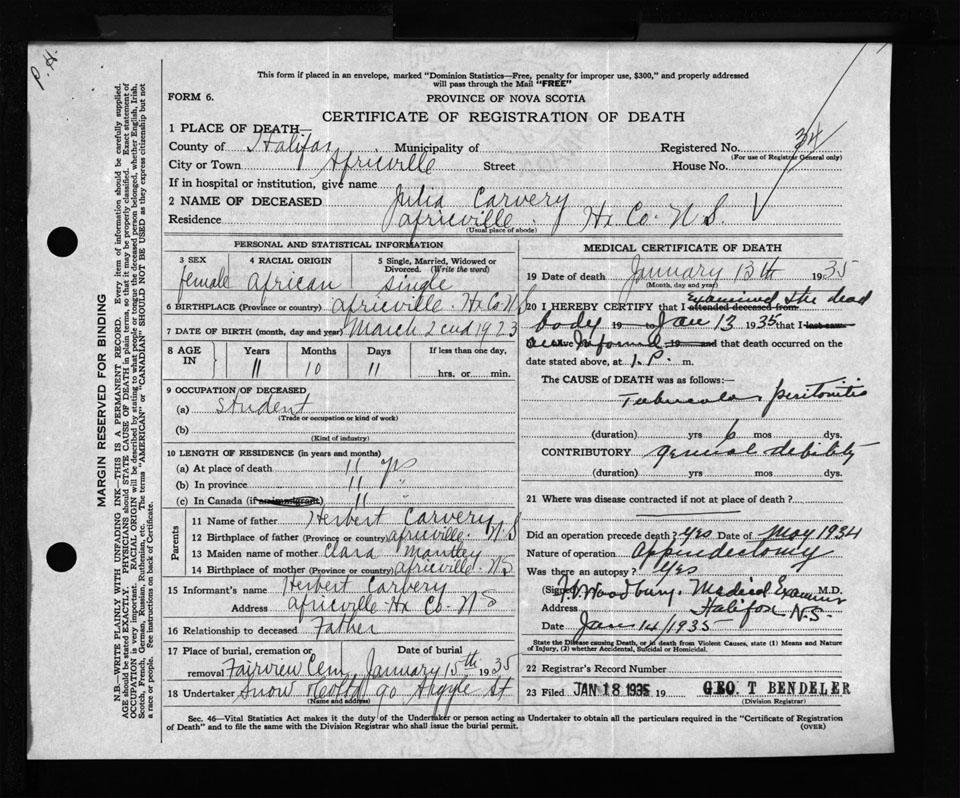 P. H.
This form if placed in an envelope, marked "Dominion Statistics—Free, penalty for improper use, $300," and properly addressed
will pass through the Mail "FREE"
FORM 6.
PROVINCE OF NOVA SCOTIA
CERTIFICATE OF REGISTRATION OF DEATH
1 PLACE OF DEATH—
County of Halifax Municipality of Registered No. 34
(For use of Registrar General only)
City or Town Africville Street House No.
If in hospital or institution, give name
2 NAME OF DECEASED Julia Carvery
Residence Africville. Hx Co. N S.
(Usual place of abode)
PERSONAL AND STATISTICAL INFORMATION
3 SEX
female
4 RACIAL ORIGIN
African
5 Single, Married, Widowed or
Divorced. (Write the word)
Single
6 BIRTHPLACE (Province or country) Africville. Hx Co N S
7 DATE OF BIRTH (month, day and year) March 2cnd 1923
8 AGE IN
Years Months Days If less than one day,
11 10 11 hrs. or min.
9 OCCUPATION OF DECEASED
(a) Student
(Trade or occupation or kind of work)
(b)
(Kind of industry)
10 LENGTH OF RESIDENCE (in years and months)
(a) At place of death 11 yrs
(b) In province 11 "
(c) In Canada (if an immigrant) 11 "
Parents
11 Name of father Herbert Carvery
12 Birthplace of father (Province or country) Africville. N S
13 Maiden name of mother Clara Mantley
14 Birthplace of mother (Province or country) Africville. NS
15 Informant's name Herbert Carvery
Address Africville Hx Co. N S
16 Relationship to deceased Father
17 Place of burial, cremation or Date of burial
removal Fairview Cem January 15th 1935
18 Undertaker Snow & Co Ltd 90 Argyle St
(Name and address)
MEDICAL CERTIFICATE OF DEATH
19 Date of death January 13th 1935
(Month, day and year)
20 I HEREBY CERTIFY that I attended deceased from examined the dead
body 19 to Jan 13 1935 that I last saw
alive informed 19 and that death occurred on the
date stated above, at 1. P. m.
The CAUSE of DEATH was as follows:—
Tubercular peritonitis
(duration) yrs 6 mos dys.
CONTRIBUTORY General debility
(duration) yrs mos dys.
21 Where was disease contracted if not at place of death?
Did an operation precede death? Yes Date of May 1934
Nature of operation Appendectomy
Was there an autopsy? Yes
(Signed) Woodbury. Medical Examiner M.D.
Address Halifax N.S.
Date Jan 14/1935
State the Disease causing Death, or in death from Violent Causes, state (1) Means and Nature
of Injury, (2) whether Accidental, Suicidal or Homicidal.
22 Registrar's Record Number
23 Filed JAN 18 1935 19 GEO. T BENDELER
(Division Registrar)
Sec. 46—Vital Statistics Act makes it the duty of the Undertaker or person acting as Undertaker to obtain all the particulars required in the "Certificate of Registration
of Death" and to file the same with the Division Registrar who shall issue the burial permit.
(OVER)
MARGIN RESERVED FOR BINDING
N.B.—WRITE PLAINLY WITH UNFADING INK—THIS IS A PERMANENT RECORD. Every item of information should be carefully supplied.
AGE should be stated EXACTLY. PHYSICIANS should STATE CAUSE OF DEATH in plain terms, so that it may be properly classified. Exact statement of
OCCUPATION is very important. RACIAL ORIGIN will be described by stating to what people or tongue the deceased person belonged, whether English, Irish,
Scotch, French, German, Russian, Ruthenian, etc. The terms "AMERICAN" or "CANADIAN" SHOULD NOT BE USED as they express citizenship but not
a race or people. See instructions on back of Certificate.